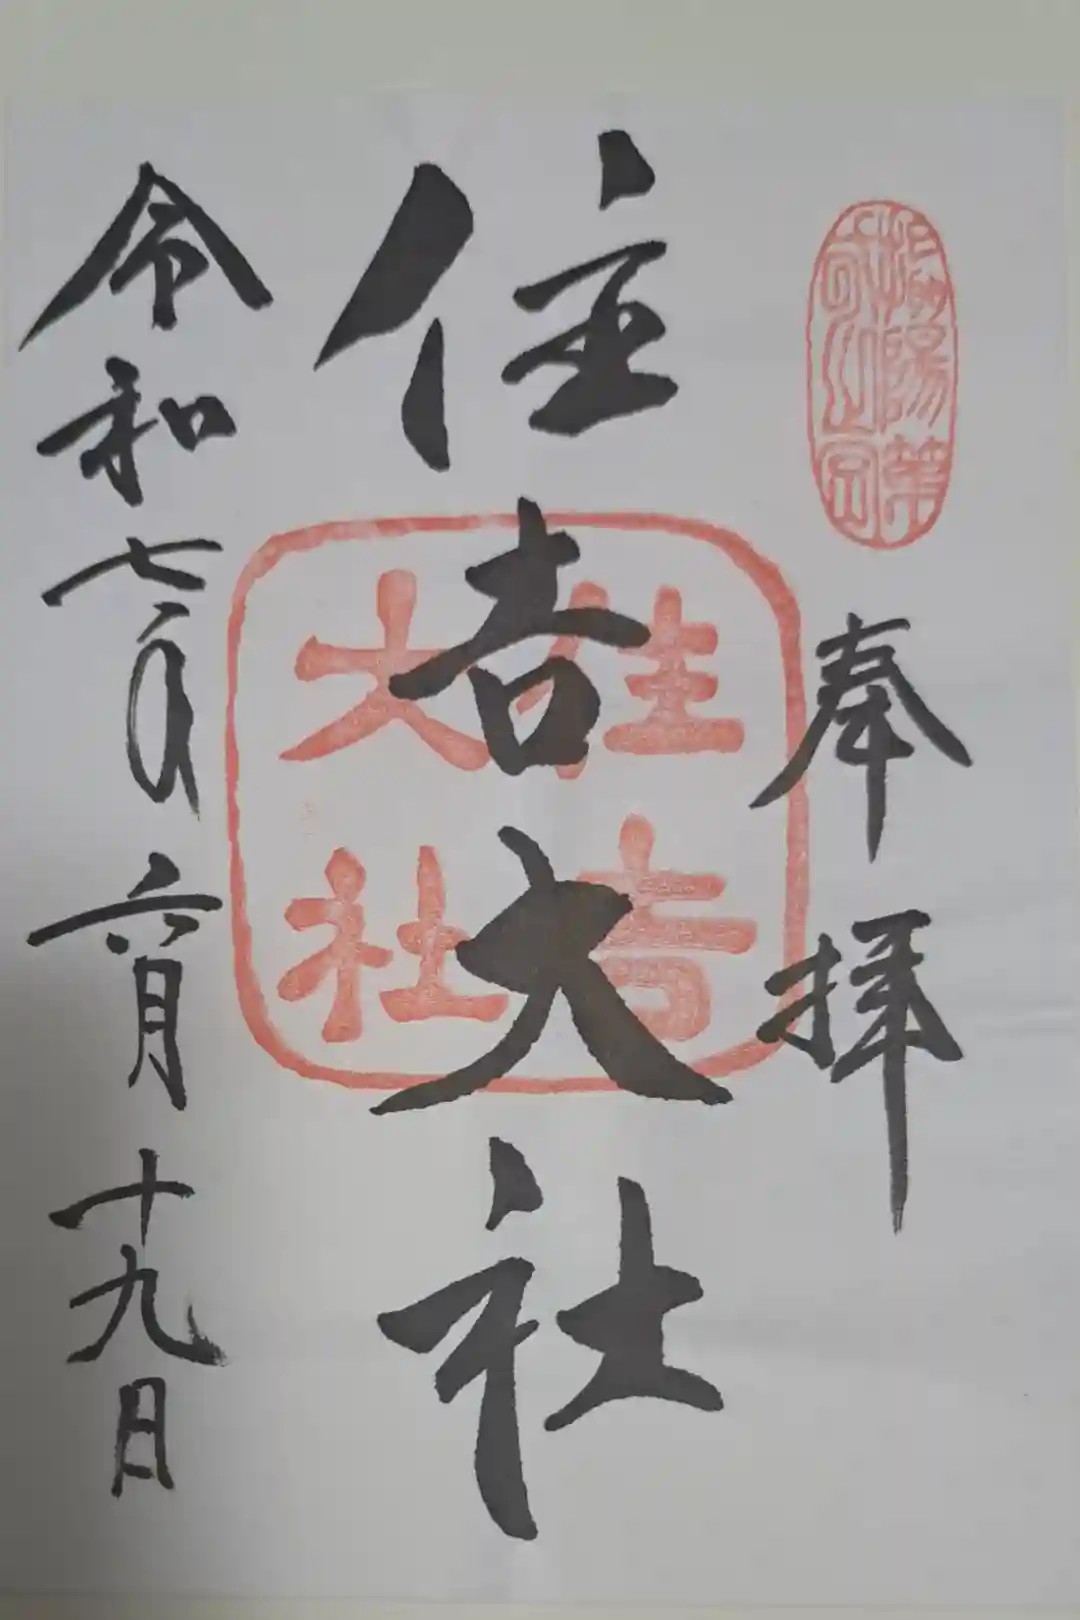 奉拝
住吉大社
住吉
大社
令和七年六月十九日